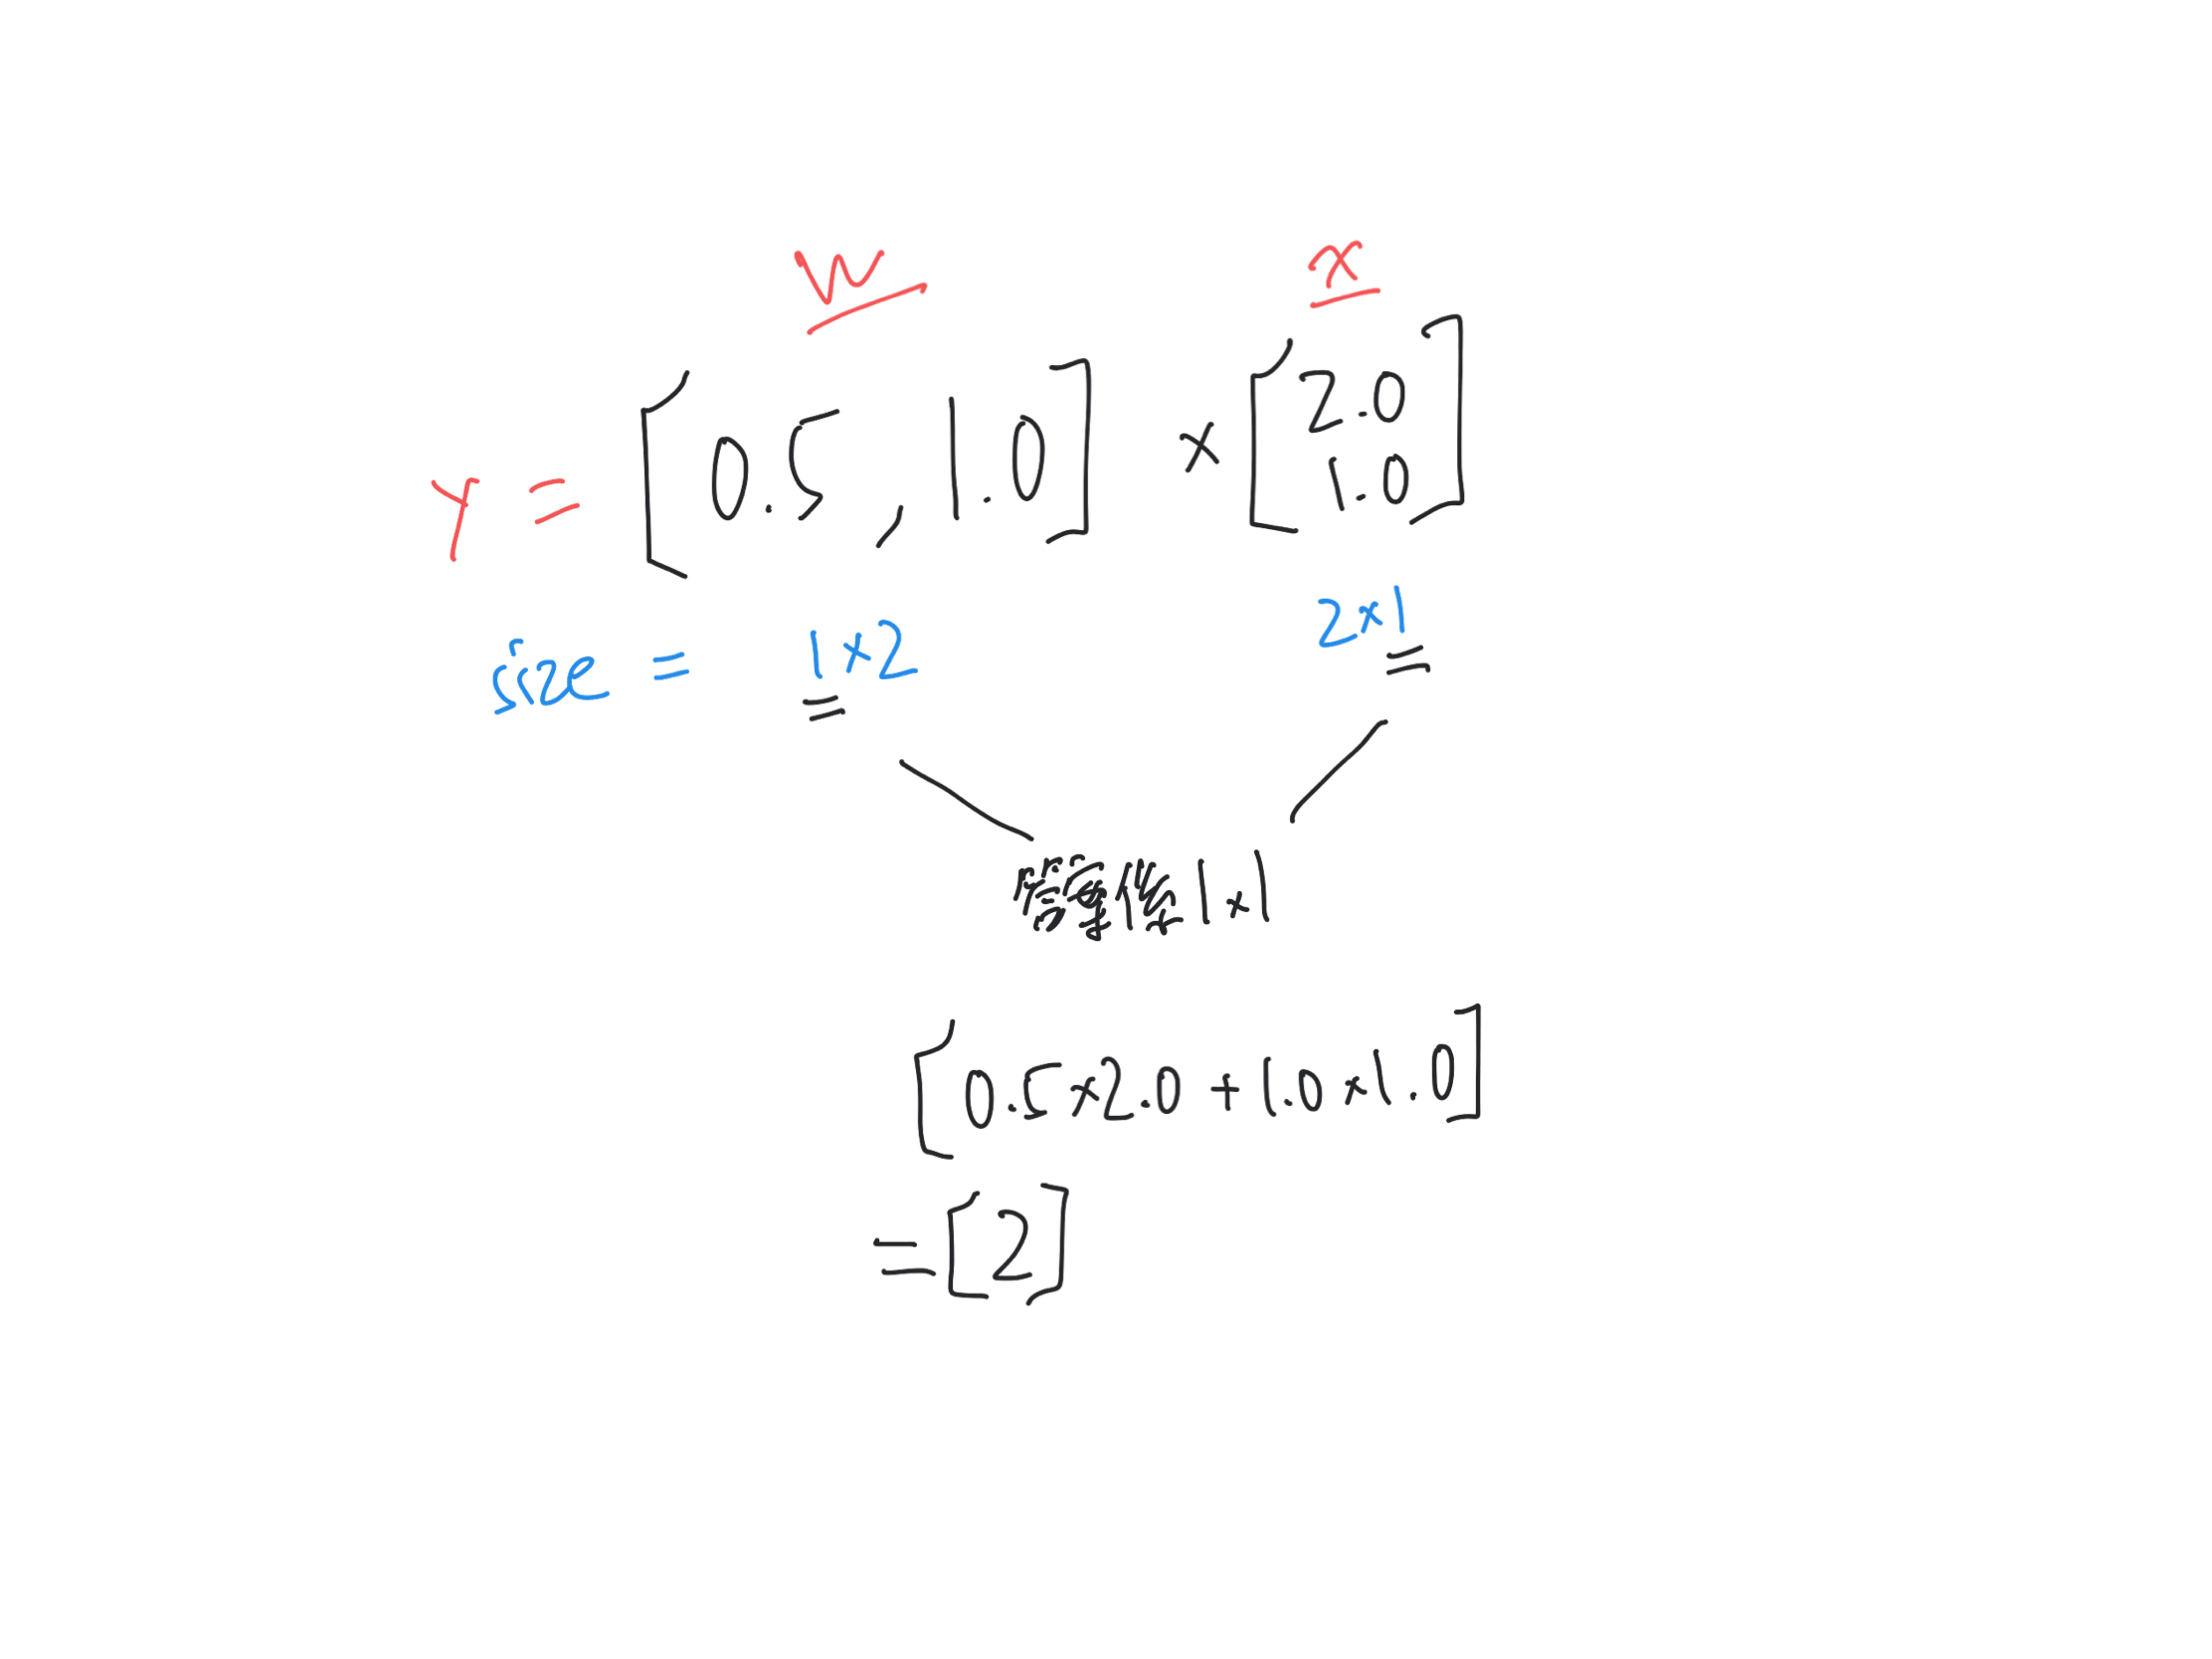 W x
Y = [0.5, 1.0] × [2.0
1.0]
size = 1×2 2×1
1×1
[0.5×2.0 + 1.0×1.0]
= [2]